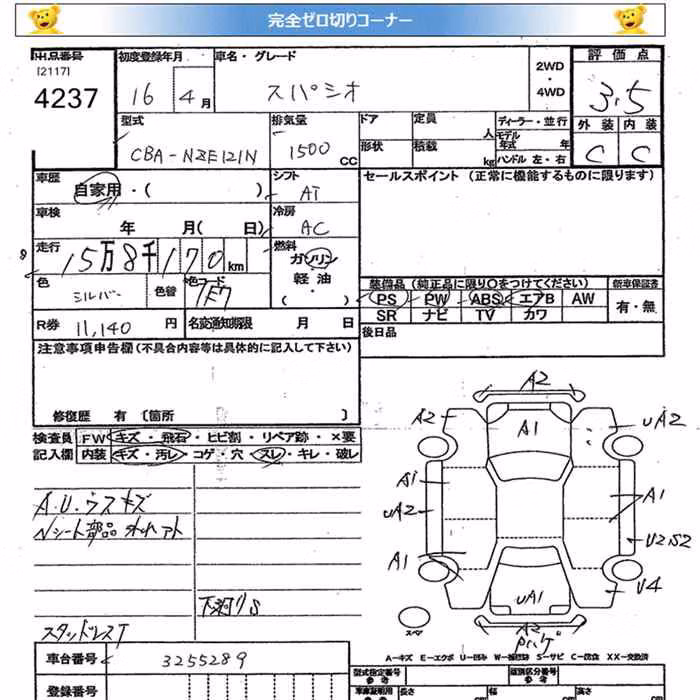 完全ゼロ切りコーナー
出品番号 初度登録年月 車名・グレード 2WD ・ 4WD 評価点
[2117]
4237 16 4月 スパシオ 3.5
型式 排気量 ドア 定員 人 ディーラー・並行 外装 内装
CBA-NZE121N 1500 CC 形状 積載 kg モデル年式 年 ハンドル 左・右 C C
車歴 自家用・( ) シフト AT セールスポイント (正常に機能するものに限ります)
車検 年 月( 日) 冷房 AC
走行 15万8千170km 燃料 ガソリン・軽油・( )
色 シルバー 色替 色コード 1E7 装備品 (純正品に限り○をつけてください) 新車保証書
PS PW ABS エアB AW 有・無
SR ナビ TV カワ
R券 11,140円 名変通知期限 月 日 後日品
注意事項申告欄(不具合内容等は具体的に記入して下さい)
修復歴 有 〔箇所 〕
検査員 FW キズ・飛石・ヒビ割・リペア跡・×要
記入欄 内装 キズ・汚レ・コゲ・穴・スレ・キレ・破レ
A.U.ウスキズ
Nシート部品
下廻りS
スタッドレスT
A2
A2 A1 UA2
A1 A1
UA2 U2S2
A1 U4
UA1
A2
Pハゲ
スペア
A-キズ E-エクボ U-凹み W-補修跡 S-サビ C-腐食 XX-交換済
車台番号 3255289 型式指定番号 参考 類別区分番号 参考
登録番号 車庫証明用 参考 長さ 幅 高さ